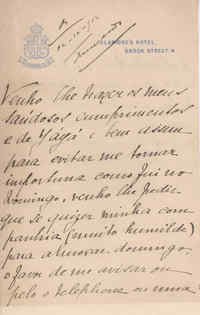 CLARIDGE'S HOTEL,
BROOK STREET. W
Venho lhe trazer os meus
saudosos cumprimentos
e de Yayá e bem assim
para evitar me tornar
importuna como fui no
domingo, venho lhe pedir
que se quizer minha com
panhia (muito humilde)
para almoçar domingo,
o favor de me avisar ou
pelo o telephone ou uma